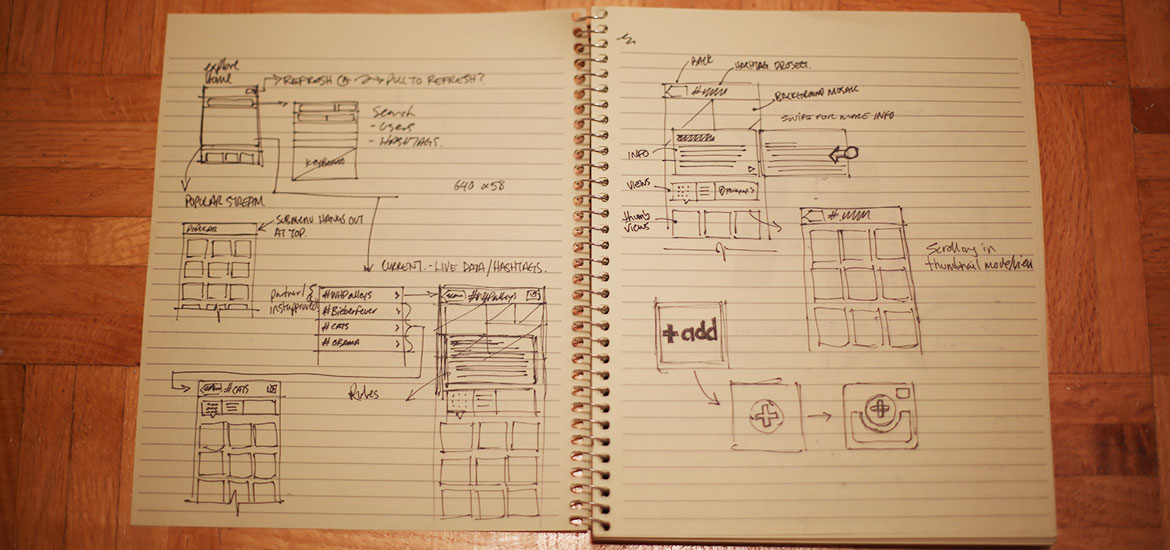 explore
home
REFRESH
PULL TO REFRESH?
Search
- USERS
- HASHTAGS.
KEYBOARD
640 or 58
POPULAR STREAM
SUBMENU HANGS OUT
AT TOP.
POPULAR
CURRENT. - LIVE DATA/HASHTAGS.
partner/
#WHPalleys >
#Bieberfever >
#CATS >
#OBAMA >
#WHPalleys
Rules
#CATS
BACK
HASHTAG PROJECT.
#
BACKGROUND MOSAIC
SWIPE FOR MORE INFO
INFO
VIEWS
thumb
views
#
Scrolling in
thumbnail mode/view
+add